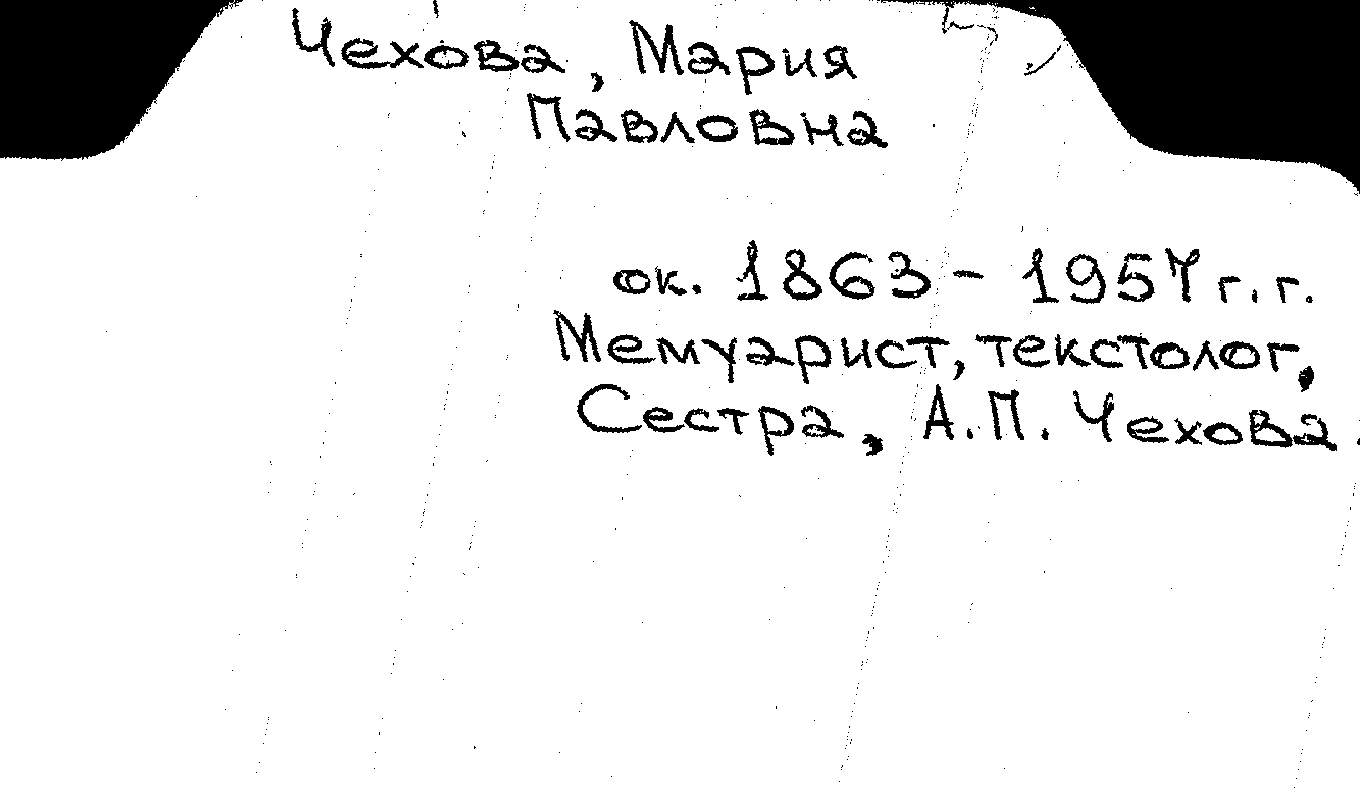 Чехова, Мария
Павловна
ок. 1863 - 1957 г.г.
Мемуарист, текстолог,
Сестра, А.П. Чехова.